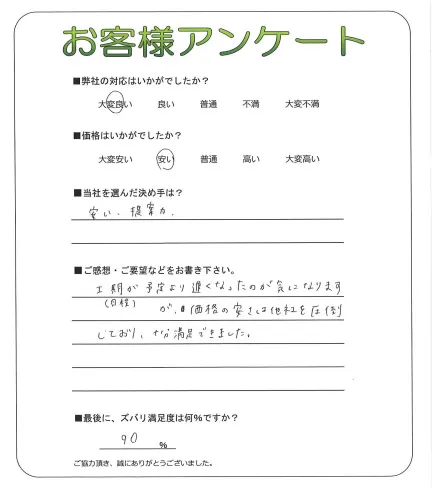 お客様アンケート
■弊社の対応はいかがでしたか？
大変良い 良い 普通 不満 大変不満
■価格はいかがでしたか？
大変安い 安い 普通 高い 大変高い
■当社を選んだ決め手は？
安い、提案力.
■ご感想・ご要望などをお書き下さい。
工期が予定より遅くなったのが気になります
(日程) が、価格の安さは他社を圧倒
しており、十分満足できました。
■最後に、ズバリ満足度は何％ですか？
90 %
ご協力頂き、誠にありがとうございました。